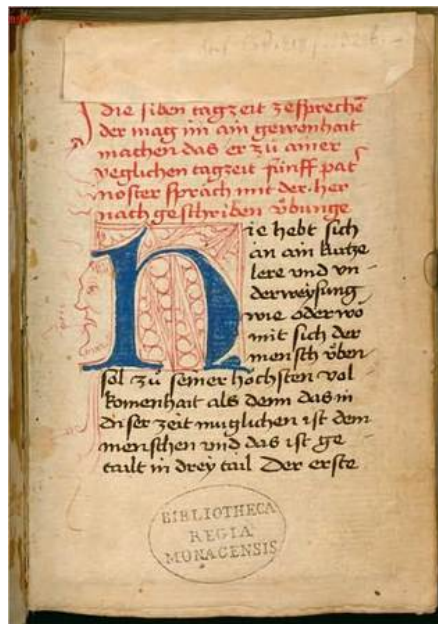 die siben tagzeit zesprechē
der mag im ain gewonhait
machen das er zů ainer
yeglichen tagzeit fünff pat
noster spräch mit der her
nach geschriben v̊bunge
Hie hebt sich
an ain kurtze
lere vnd vn-
derweysung
wie oder wo
mit sich der
mensch v̊ben
sol zů seiner höchsten vol
komenhait als denn das in
diser zeit muglichen ist dem
menschen vnd das ist ge
tailt in drey tail Der erste
BIBLIOTHECA
REGIA
MONACENSIS